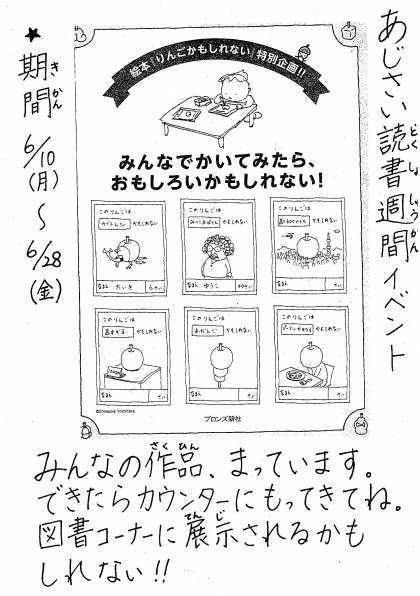 あじさい読書週間イベント
どくしょしゅうかん
★期間 6/10(月)～6/28(金)
きかん
絵本『りんごかもしれない』特別企画!!
みんなでかいてみたら、
おもしろいかもしれない!
このりんごは
かもしれない
なまえ たいき 6さい
このりんごは
かもしれない
なまえ ゆうこ
さい
このりんごは
かもしれない
なまえ
さい
このりんごは
かもしれない
なまえ
さい
このりんごは
おだんご かもしれない
なまえ
さい
このりんごは
かもしれない
なまえ
さい
©Shinsuke Yoshitake
ブロンズ新社
さくひん
みんなの作品、まっています。
できたらカウンターにもってきてね。
てんじ
図書コーナーに展示されるかも
しれない!!